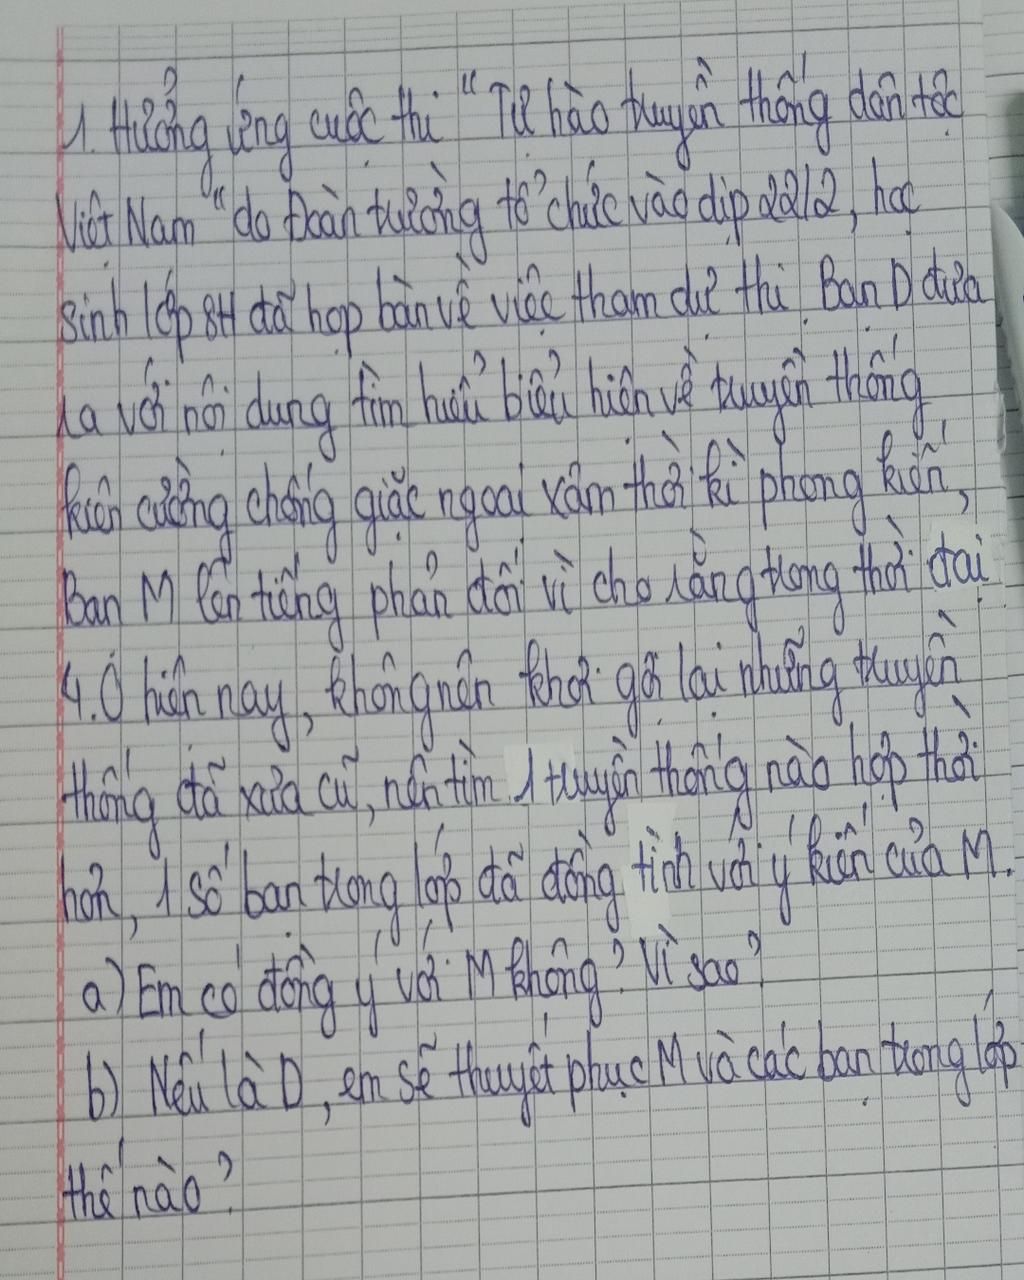 1. Hưởng ứng cuộc thi "Tự hào truyền thống dân tộc
Việt Nam" do Đoàn trường tổ chức vào dịp 22/2, học
sinh lớp 8H đã họp bàn về việc tham dự thi. Bạn D đưa
ra với nội dung tìm hiểu biểu hiện về truyền thống
kiên cường chống giặc ngoại xâm thời kì phong kiến,
Bạn M lên tiếng phản đối vì cho rằng trong thời đại
4.0 hiện nay, không nên khơi gợi lại những truyền
thống đã xưa cũ, nên tìm 1 truyền thống nào hợp thời
hơn, 1 số bạn trong lớp đã đồng tình với ý kiến của M.
a) Em có đồng ý với M không? Vì sao?
b) Nếu là D, em sẽ thuyết phục M và các bạn trong lớp
thế nào?